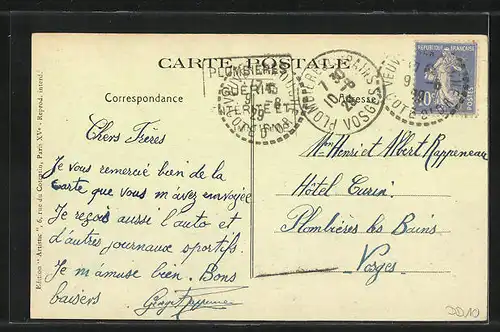 CARTE POSTALE
PLOMBIERES
GUERIT
PLOMBIERES
VOSGES
REPUBLIQUE FRANÇAISE
POSTES
Correspondance
Adresse
Chers Frères
Je vous remercie bien de la
carte que vous m'avez envoyée
Je reçois aussi l'auto et
d'autres journaux sportifs.
Je m'amuse bien. Bons
baisers
Henri et Albert Rappeneau
Hôtel
Plombières les Bains
Vosges
Edition "Artistic", 6, rue du Paris XVe - Reprod. interd.
JD10